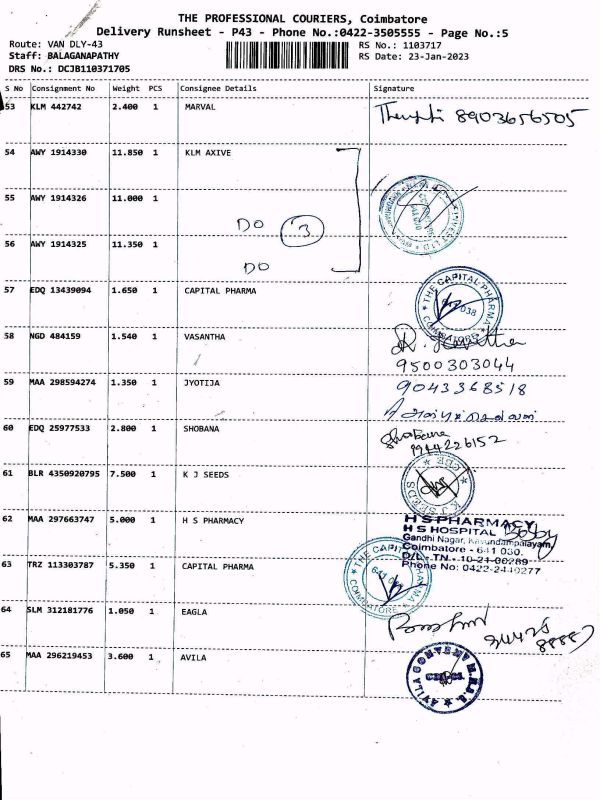 THE PROFESSIONAL COURIERS, Coimbatore
Delivery Runsheet - P43 - Phone No.:0422-3505555 - Page No.:5
Route: VAN DLY-43 RS No.: 1103717
Staff: BALAGANAPATHY RS Date: 23-Jan-2023
DRS No.: DCJB110371705
S No Consignment No Weight PCS Consignee Details Signature
53 KLM 442742 2.400 1 MARVAL
8903656505
54 AWY 1914330 11.850 1 KLM AXIVE
55 AWY 1914326 11.000 1
DO 3
56 AWY 1914325 11.350 1
DO
57 EDQ 13439094 1.650 1 CAPITAL PHARMA
THE CAPITAL PHARMA
COIMBATORE
58 NGD 484159 1.540 1 VASANTHA
9500303044
59 MAA 298594274 1.350 1 JYOTIJA
9043368518
60 EDQ 25977533 2.800 1 SHOBANA
Shobana
9944226152
61 BLR 4350920795 7.500 1 K J SEEDS
K J SEEDS
CBE
62 MAA 297663747 5.000 1 H S PHARMACY
H S PHARMACY
H S HOSPITAL
Gandhi Nagar, Kavundampalayam,
Coimbatore - 641 030.
D/L - TN - 10-21-00289
Phone No: 0422-2440277
63 TRZ 113303787 5.350 1 CAPITAL PHARMA
THE CAPITAL PHARMA
COIMBATORE
64 SLM 312181776 1.050 1 EAGLA
65 MAA 296219453 3.600 1 AVILA
AVILA CONVENT M.H.S.S.